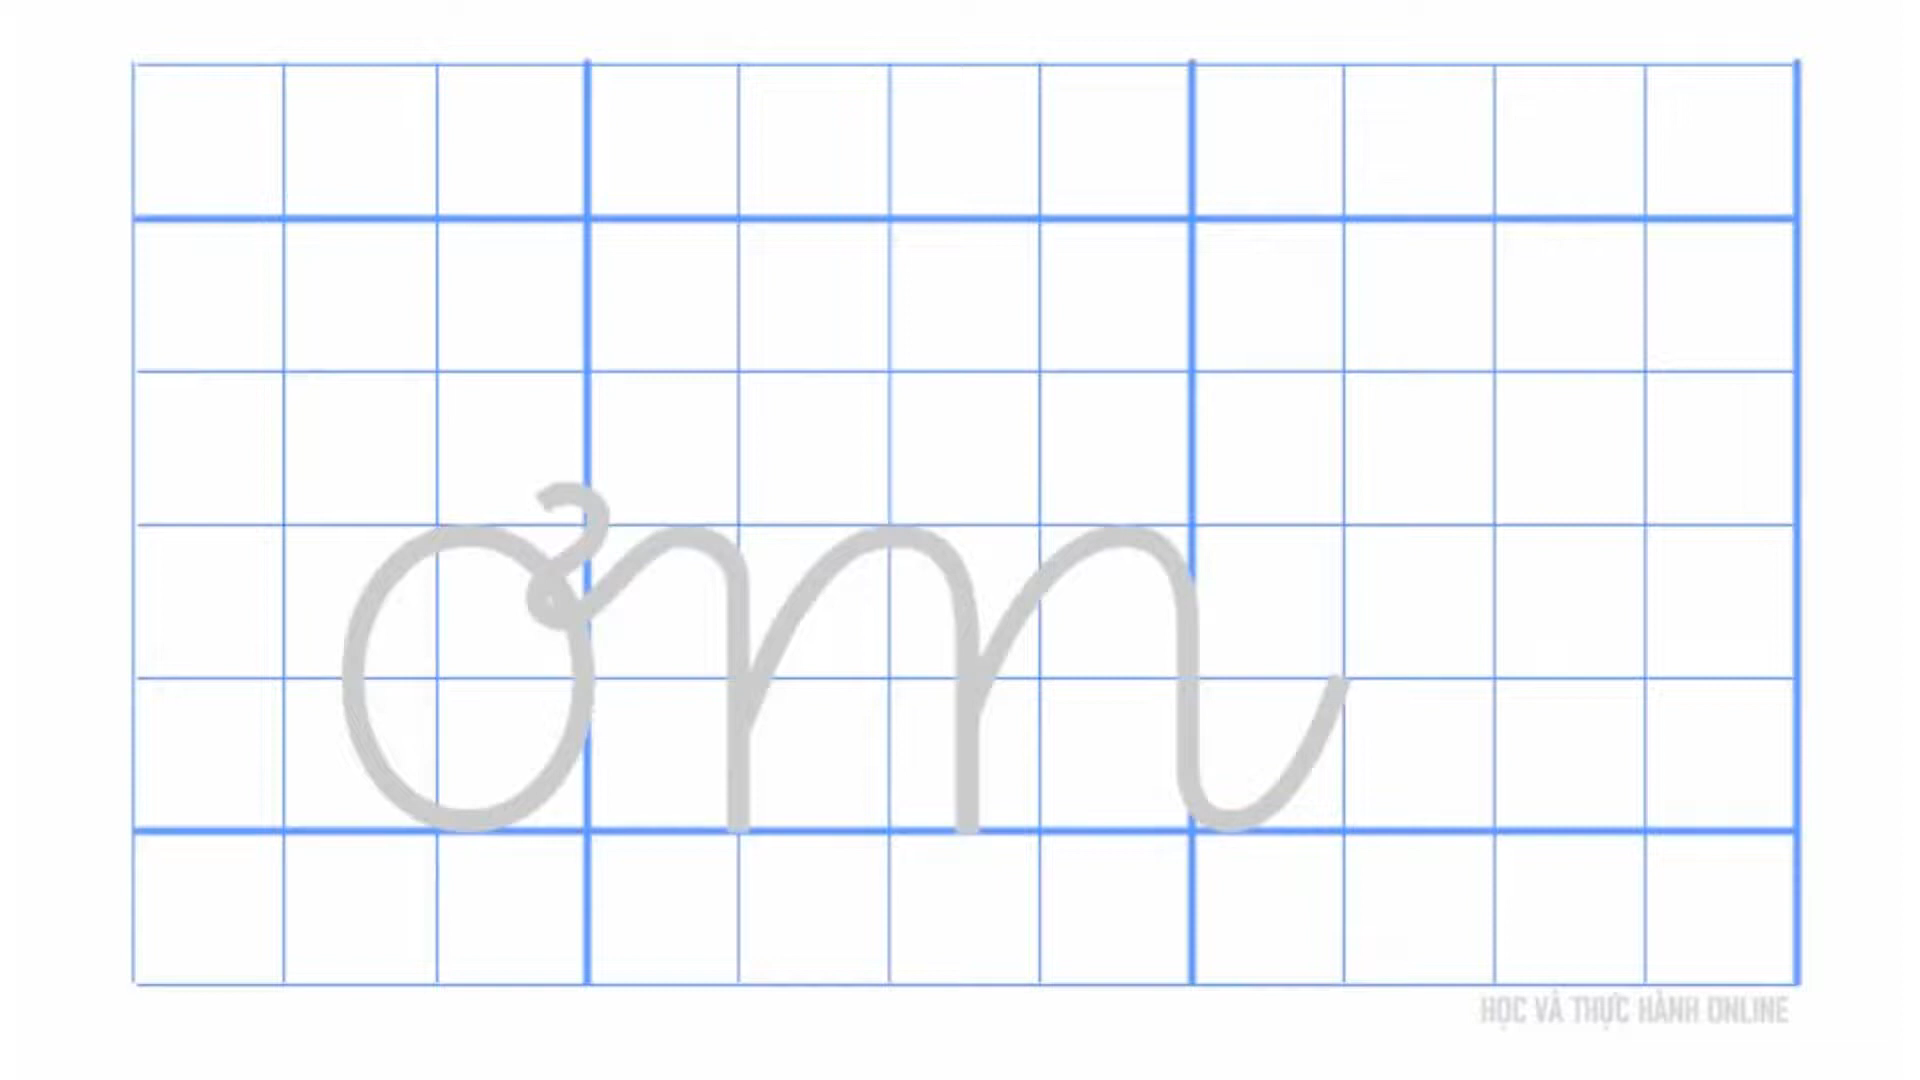 ơm
HỌC VÀ THỰC HÀNH ONLINE